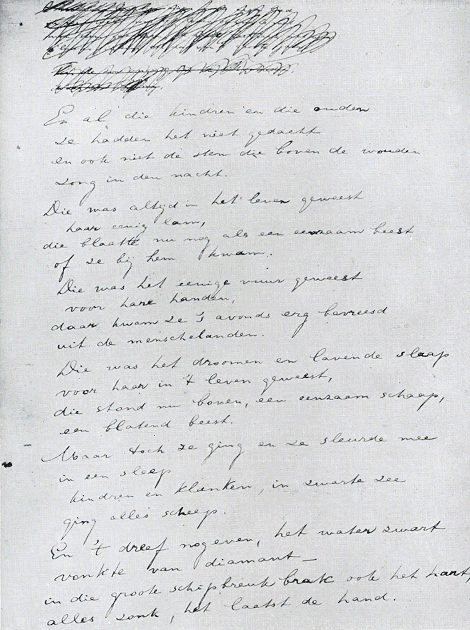 En al die kindren en die ouden
ze hadden het niet gedacht
en ook niet de stem die boven de wouden
zong in den nacht.
Die was altijd in het leven geweest
haar eenig lam,
die blaatte nu nog als een eenzaam beest
of ze bij hem kwam.
Die was het eenige vuur geweest
voor hare handen,
daar kwam ze 's avonds erg bevreesd
uit de menschelanden.
Die was het droomen en lavende slaap
voor haar in 't leven geweest,
die stond nu boven, een eenzaam schaap,
een blatend beest.
Maar toch ze ging en ze sleurde mee
in een sleep
kindren en klanken, in zwarte zee
ging alles scheep.
En 't dreef nog even, het water zwart
vonkte van diamant —
in die groote schipbreuk brak ook het hart,
alles zonk, het laatst de hand.